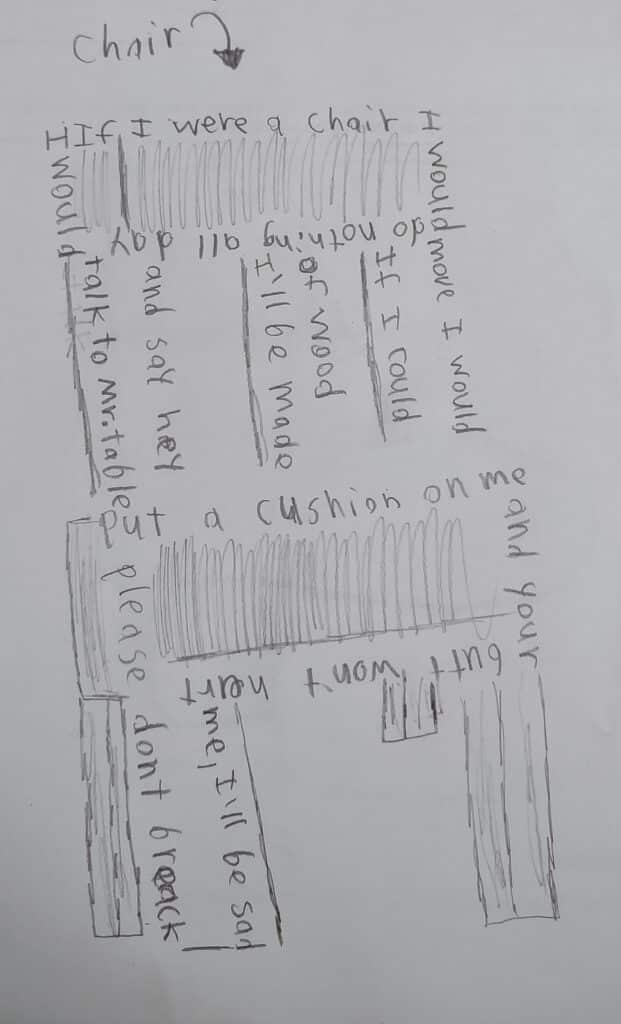 Chair
If I were a chair I
would move I would
If I could
do nothing all day
I'll be made
of wood
I would
talk to Mr. table
and say hey
put a cushion on me
and your
butt won't hert
me, I'll be sad
please dont breack